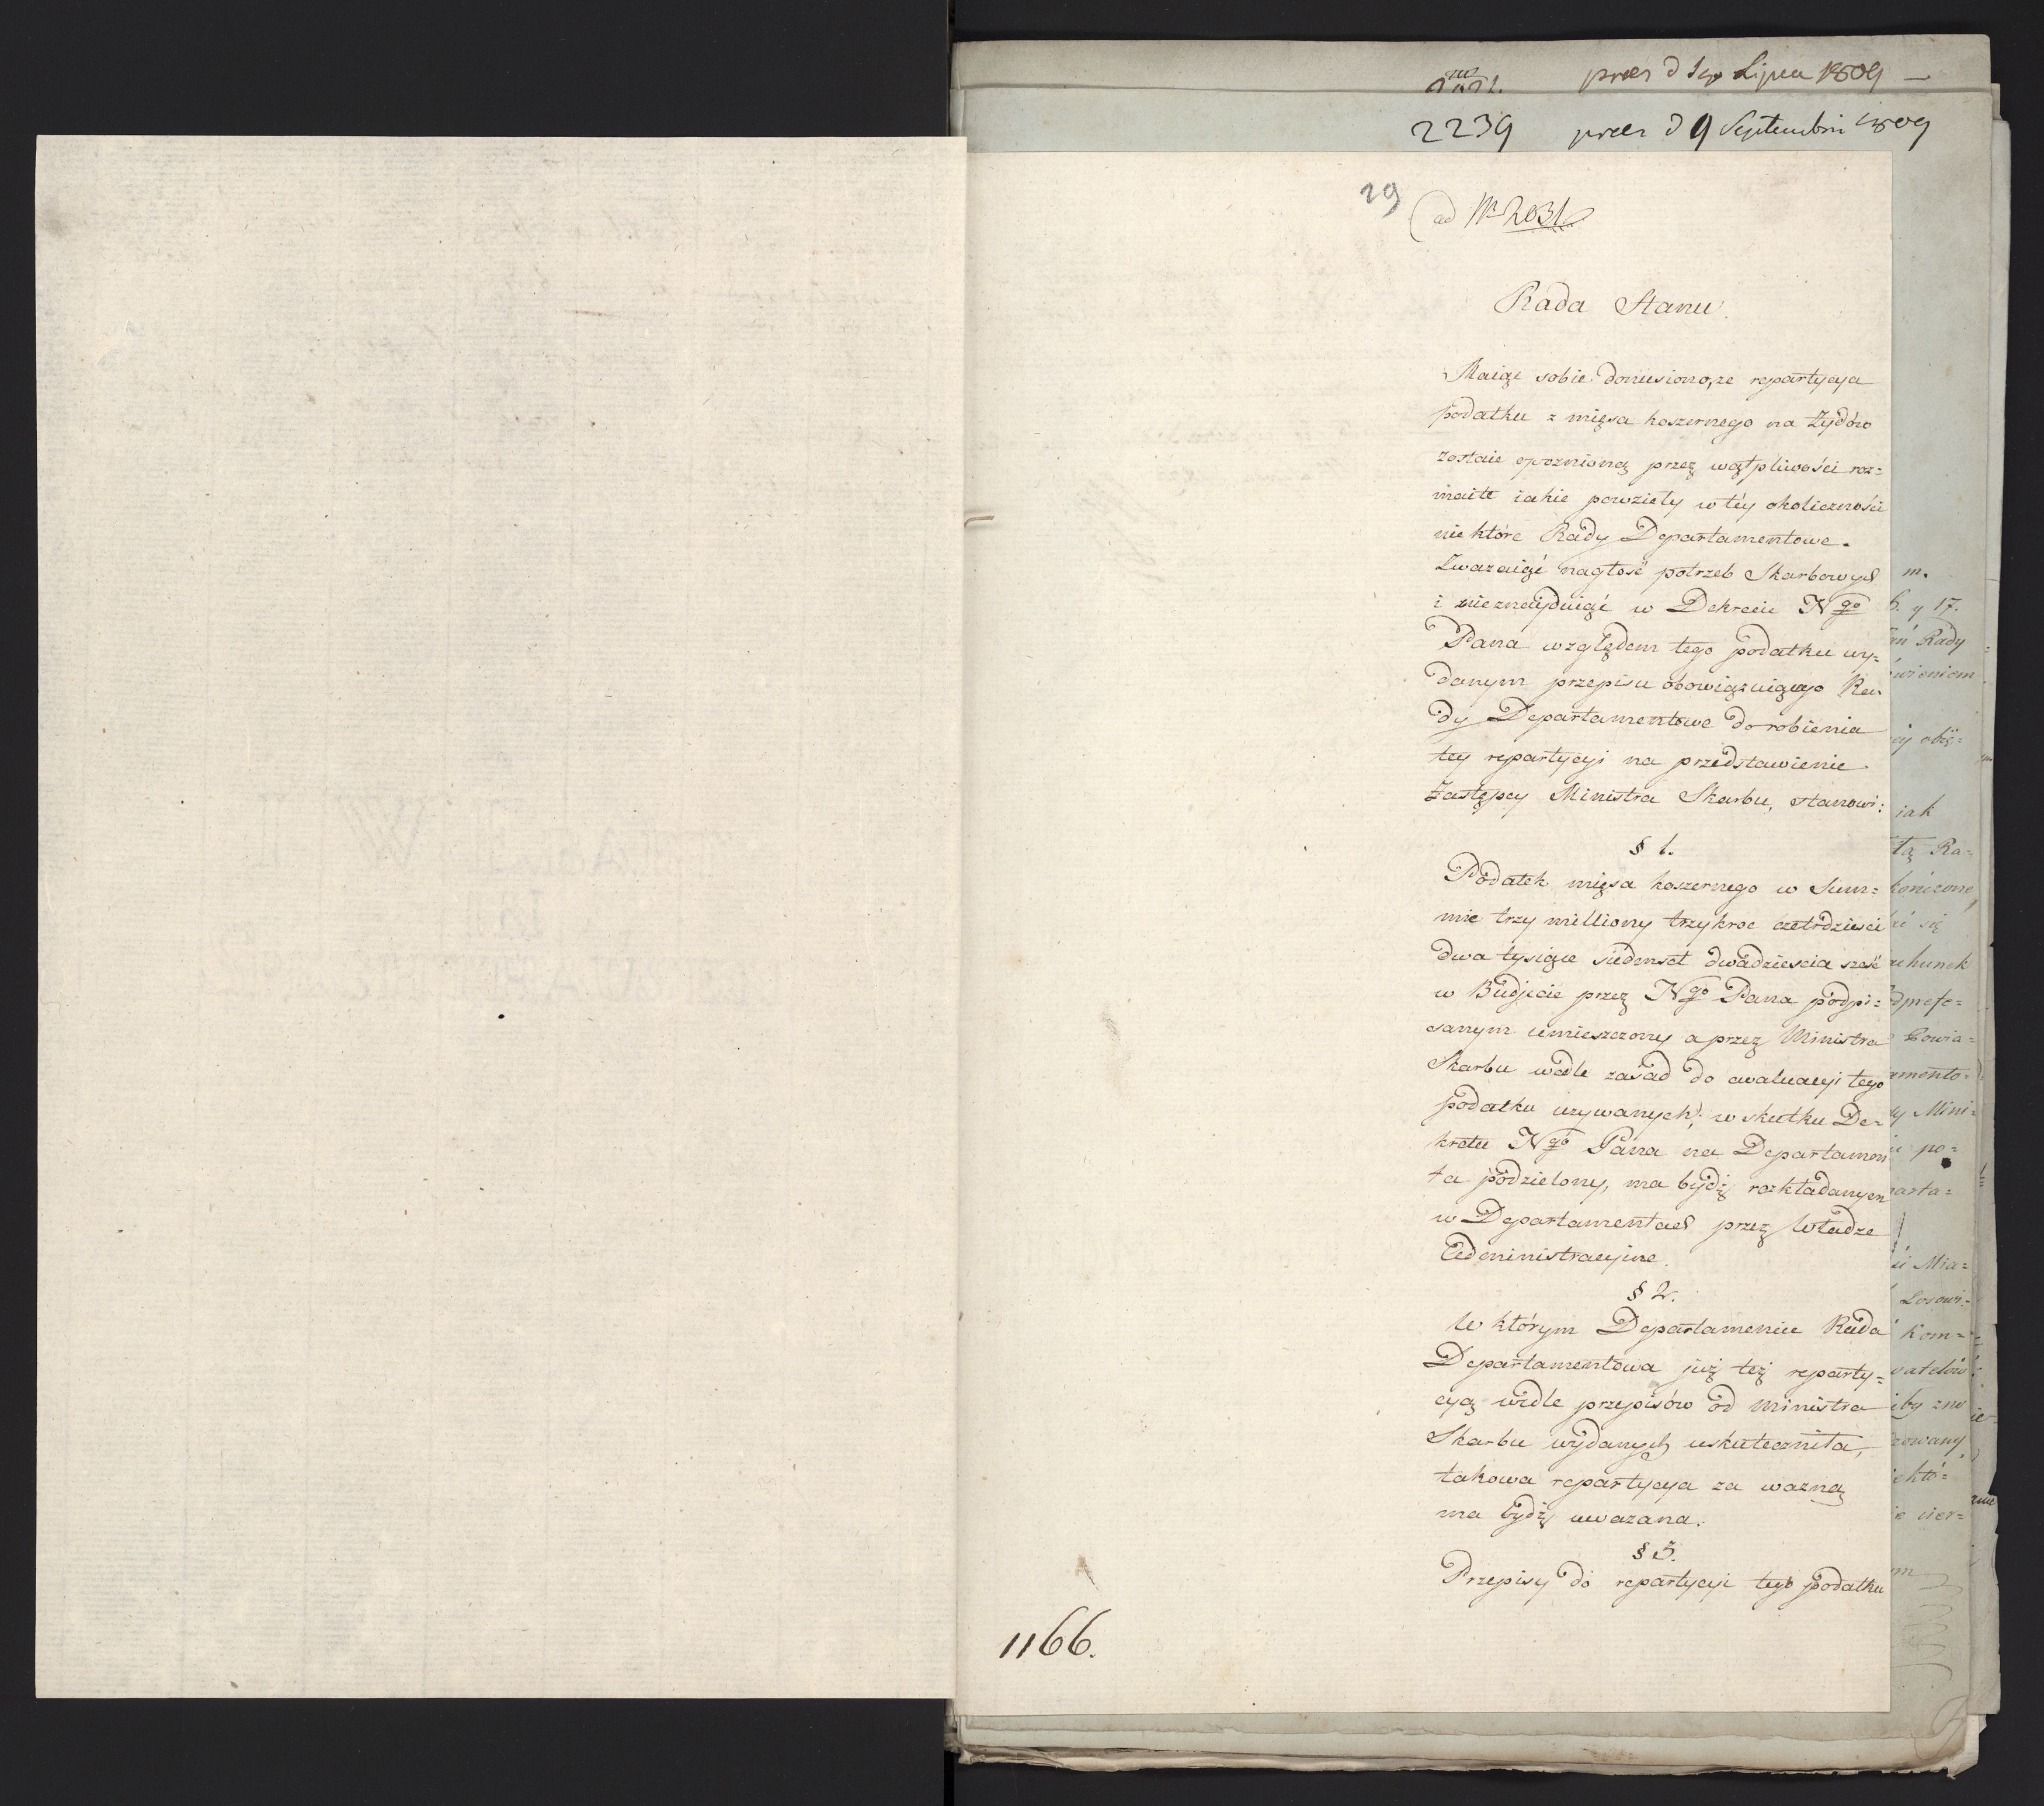 prees d 1 ep Lipca 1809 —
2239 prees d 9 Septembris 1809
29
ad Nr 2031
Rada Stanu.
Maiąc sobie doniesiono, ze repartycya
podatku z mięsa koszernego na Żydów
zostaie opoznioną przez wątpliwości roz=
maite iakie powzieły w téy okoliczności
nie które Rady Departamentowe.
Zwazaiąć nagłość potrzeb Skarbowych
i nieznayduiąć w Dekrecie Ngo
Pana względem tego podatku wy=
danym przepisu obowiązuiącego Ra=
dy Departamentowe do robienia
tey repartycyi na przedstawienie
Zastępcy Ministra Skarbu, stanowi:
§ 1.
Podatek mięsa koszernego w Sum=
mie trzy milliony trzykroc czterdziesci
dwa tysiące siedmset dwadziescia sześć
w Budjecie przez Ngo Pana podpi=
sanym umieszczony a przez Ministra
Skarbu wedle zasad do ewaluacyi tego
podatku uzywanych, w skutku De=
kretu Ngo Pana na Departamen
ta podzielony, ma bydź rozkładanym
w Departamentach przez Władze
Administracyine.
§ 2.
W którym Departamencie Rada
Departamentowa już też reparty=
cyą wedle przepisów od Ministra
Skarbu wydanych uskuteczniła,
takowa repartycya za wazną
ma bydź uwazana.
§ 3.
Przepisy do repartycyi tego podatku
1166.
m.
6. y 17.
Rady
wieniem
iak
tą Ra=
kończone
się
chunek
Powia=
amento=
Mini=
po=
parta=
Mia=
Kom=
watelów
by zno
zowany
m